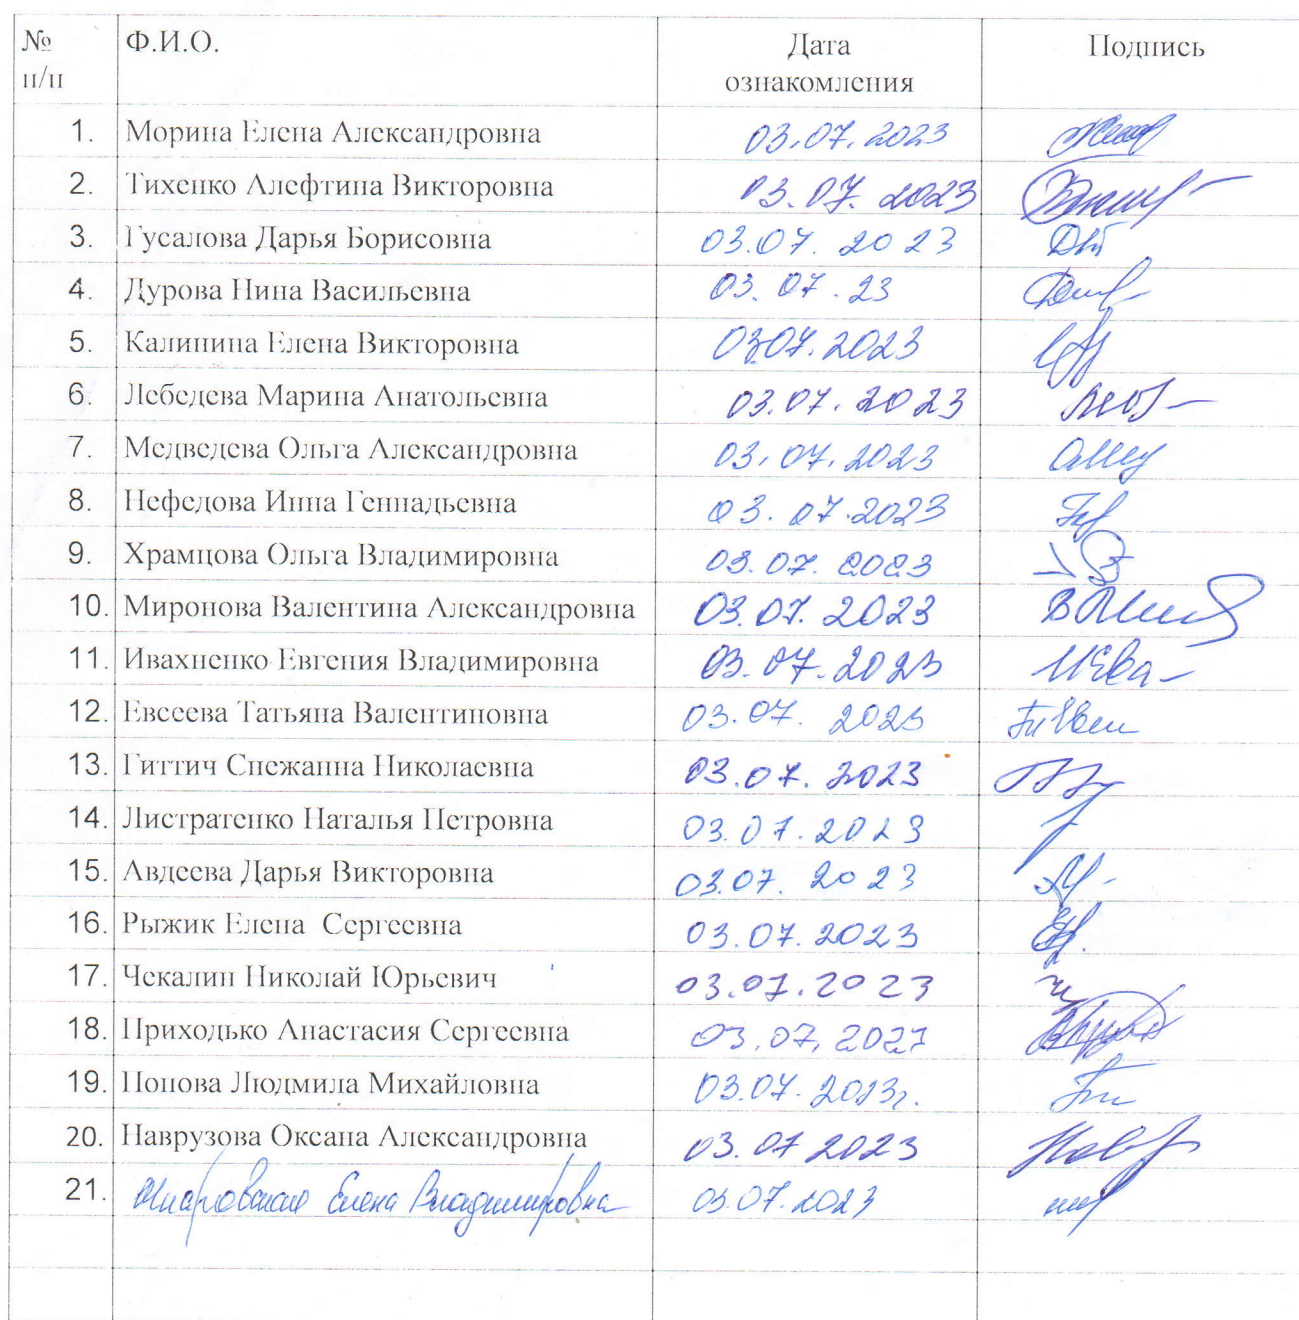 № Ф.И.О. Дата Подпись
п/п ознакомления
1. Морина Елена Александровна 03.07.2023
2. Тихенко Алефтина Викторовна 03.07.2023
3. Гусалова Дарья Борисовна 03.07.2023
4. Дурова Нина Васильевна 03.07.23
5. Калинина Елена Викторовна 0307.2023
6. Лебедева Марина Анатольевна 03.07.2023
7. Медведева Ольга Александровна 03.07.2023
8. Нефедова Инна Геннадьевна 03.07.2023
9. Храмцова Ольга Владимировна 03.07.2023
10. Миронова Валентина Александровна 03.07.2023
11. Ивахненко Евгения Владимировна 03.07.2023
12. Евсеева Татьяна Валентиновна 03.07.2023
13. Гиттич Снежанна Николаевна 03.07.2023
14. Листратенко Наталья Петровна 03.07.2023
15. Авдеева Дарья Викторовна 03.07.2023
16. Рыжик Елена Сергеевна 03.07.2023
17. Чекалин Николай Юрьевич 03.07.2023
18. Приходько Анастасия Сергеевна 03.07.2023
19. Попова Людмила Михайловна 03.07.2023г.
20. Наврузова Оксана Александровна 03.07 2023
21. Елена Владимировна 03.07.2023